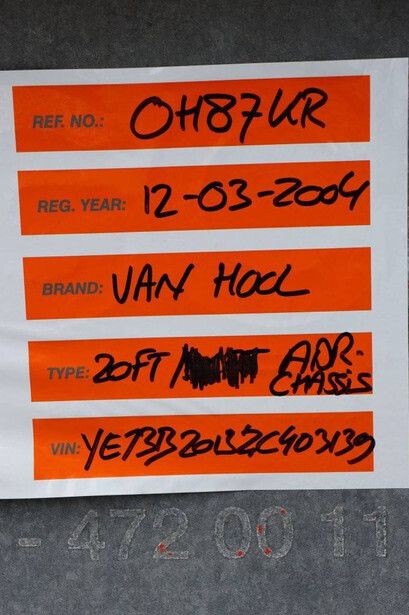 REF. NO.: OH87KR
REG. YEAR: 12-03-2004
BRAND: VAN HOOL
TYPE: 20FT ADR.
CHASSIS
VIN: YE7BB2013ZC403139
- 472 00 11